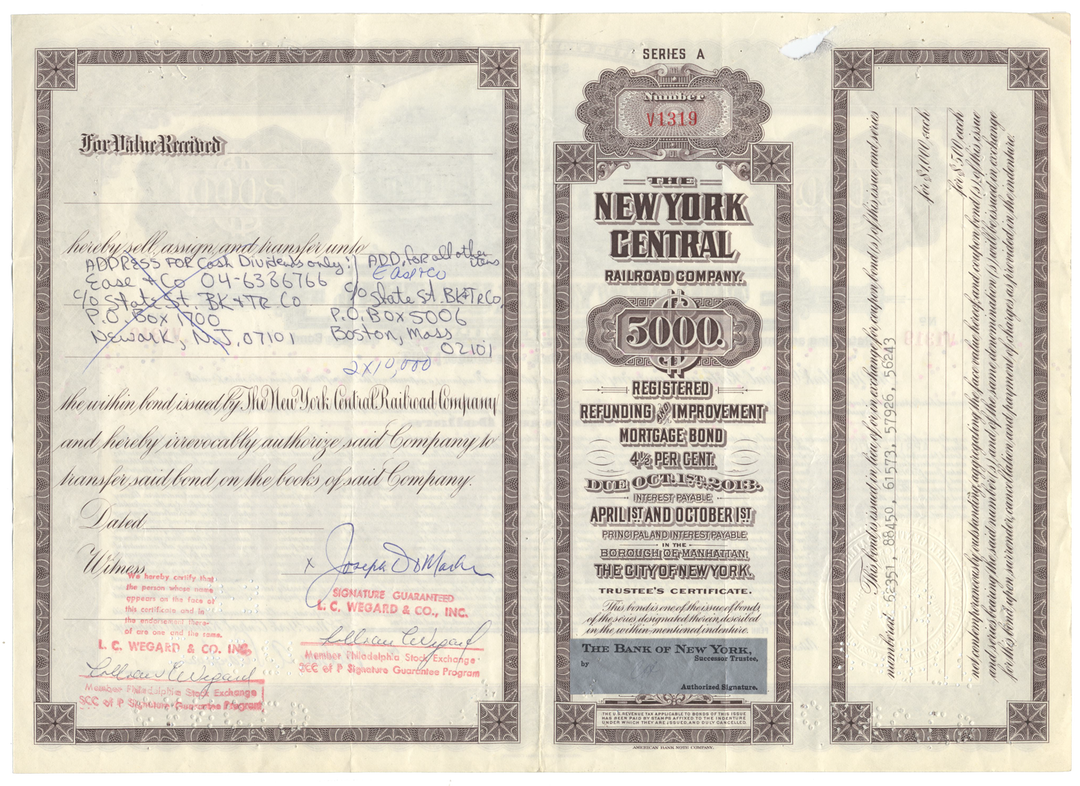 For Value Received
hereby sell, assign, and transfer unto
ADDRESS FOR Cash Dividends only:
Ease & Co 04-6386766
c/o State St. BK & TR Co
P.O. Box 1700
Newark, N.J. 07101
ADD. for all other items
c/o State St. BK & TR Co.
P.O. Box 5006
Boston, Mass
02101
2x10,000
the within bond issued by The New York Central Railroad Company
and hereby irrevocably authorize said Company to
transfer said bond on the books of said Company.
Dated
Witness
x Joseph
We hereby certify that
the person whose name
appears on the face of
this certificate and in
the endorsement there-
of are one and the same.
L. C. WEGARD & CO. INC.
Member Philadelphia Stock Exchange
SCC of P Signature Guarantee Program
SIGNATURE GUARANTEED
L. C. WEGARD & CO., INC.
Member Philadelphia Stock Exchange
SCC of P Signature Guarantee Program
SERIES A
Number
V1319
THE
NEW YORK
CENTRAL
RAILROAD COMPANY.
$5000.
REGISTERED
REFUNDING AND IMPROVEMENT
MORTGAGE BOND
4½ PER CENT.
DUE OCT. 1ST, 2013.
INTEREST PAYABLE
APRIL 1ST AND OCTOBER 1ST
PRINCIPAL AND INTEREST PAYABLE
IN THE
BOROUGH OF MANHATTAN.
THE CITY OF NEW YORK.
TRUSTEE'S CERTIFICATE.
This bond is one of the issue of bonds
of the series designated therein, described
in the within-mentioned indenture.
THE BANK OF NEW YORK,
Successor Trustee,
by
Authorized Signature.
THE U.S. REVENUE TAX APPLICABLE TO BONDS OF THIS ISSUE
HAS BEEN PAID BY STAMPS AFFIXED TO THE INDENTURE
UNDER WHICH THEY ARE ISSUED, AND DULY CANCELLED.
AMERICAN BANK NOTE COMPANY.
This bond is issued in lieu of or in exchange for coupon bonds of this issue and series
numbered 62351, 88450, 61573, 57926, 56243 for $1,000 each
for $500 each
not contemporaneously outstanding, aggregating the face value hereof, and coupon bonds of this issue
and series bearing the said number(s) and of the same denomination(s) will be issued in exchange
for this bond upon surrender, cancellation and payment of charges as provided in the indenture.